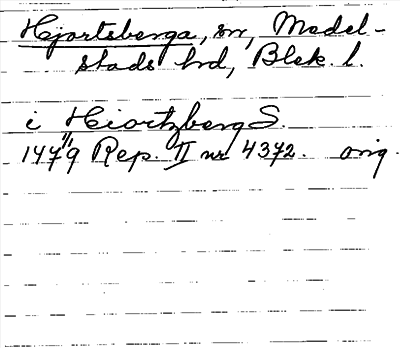 Hjortsberga, sn, Medel-
stads hd, Blek. l.
i Hiortzberg S.
14 11/7 79 Rep. II nr 4372. orig.